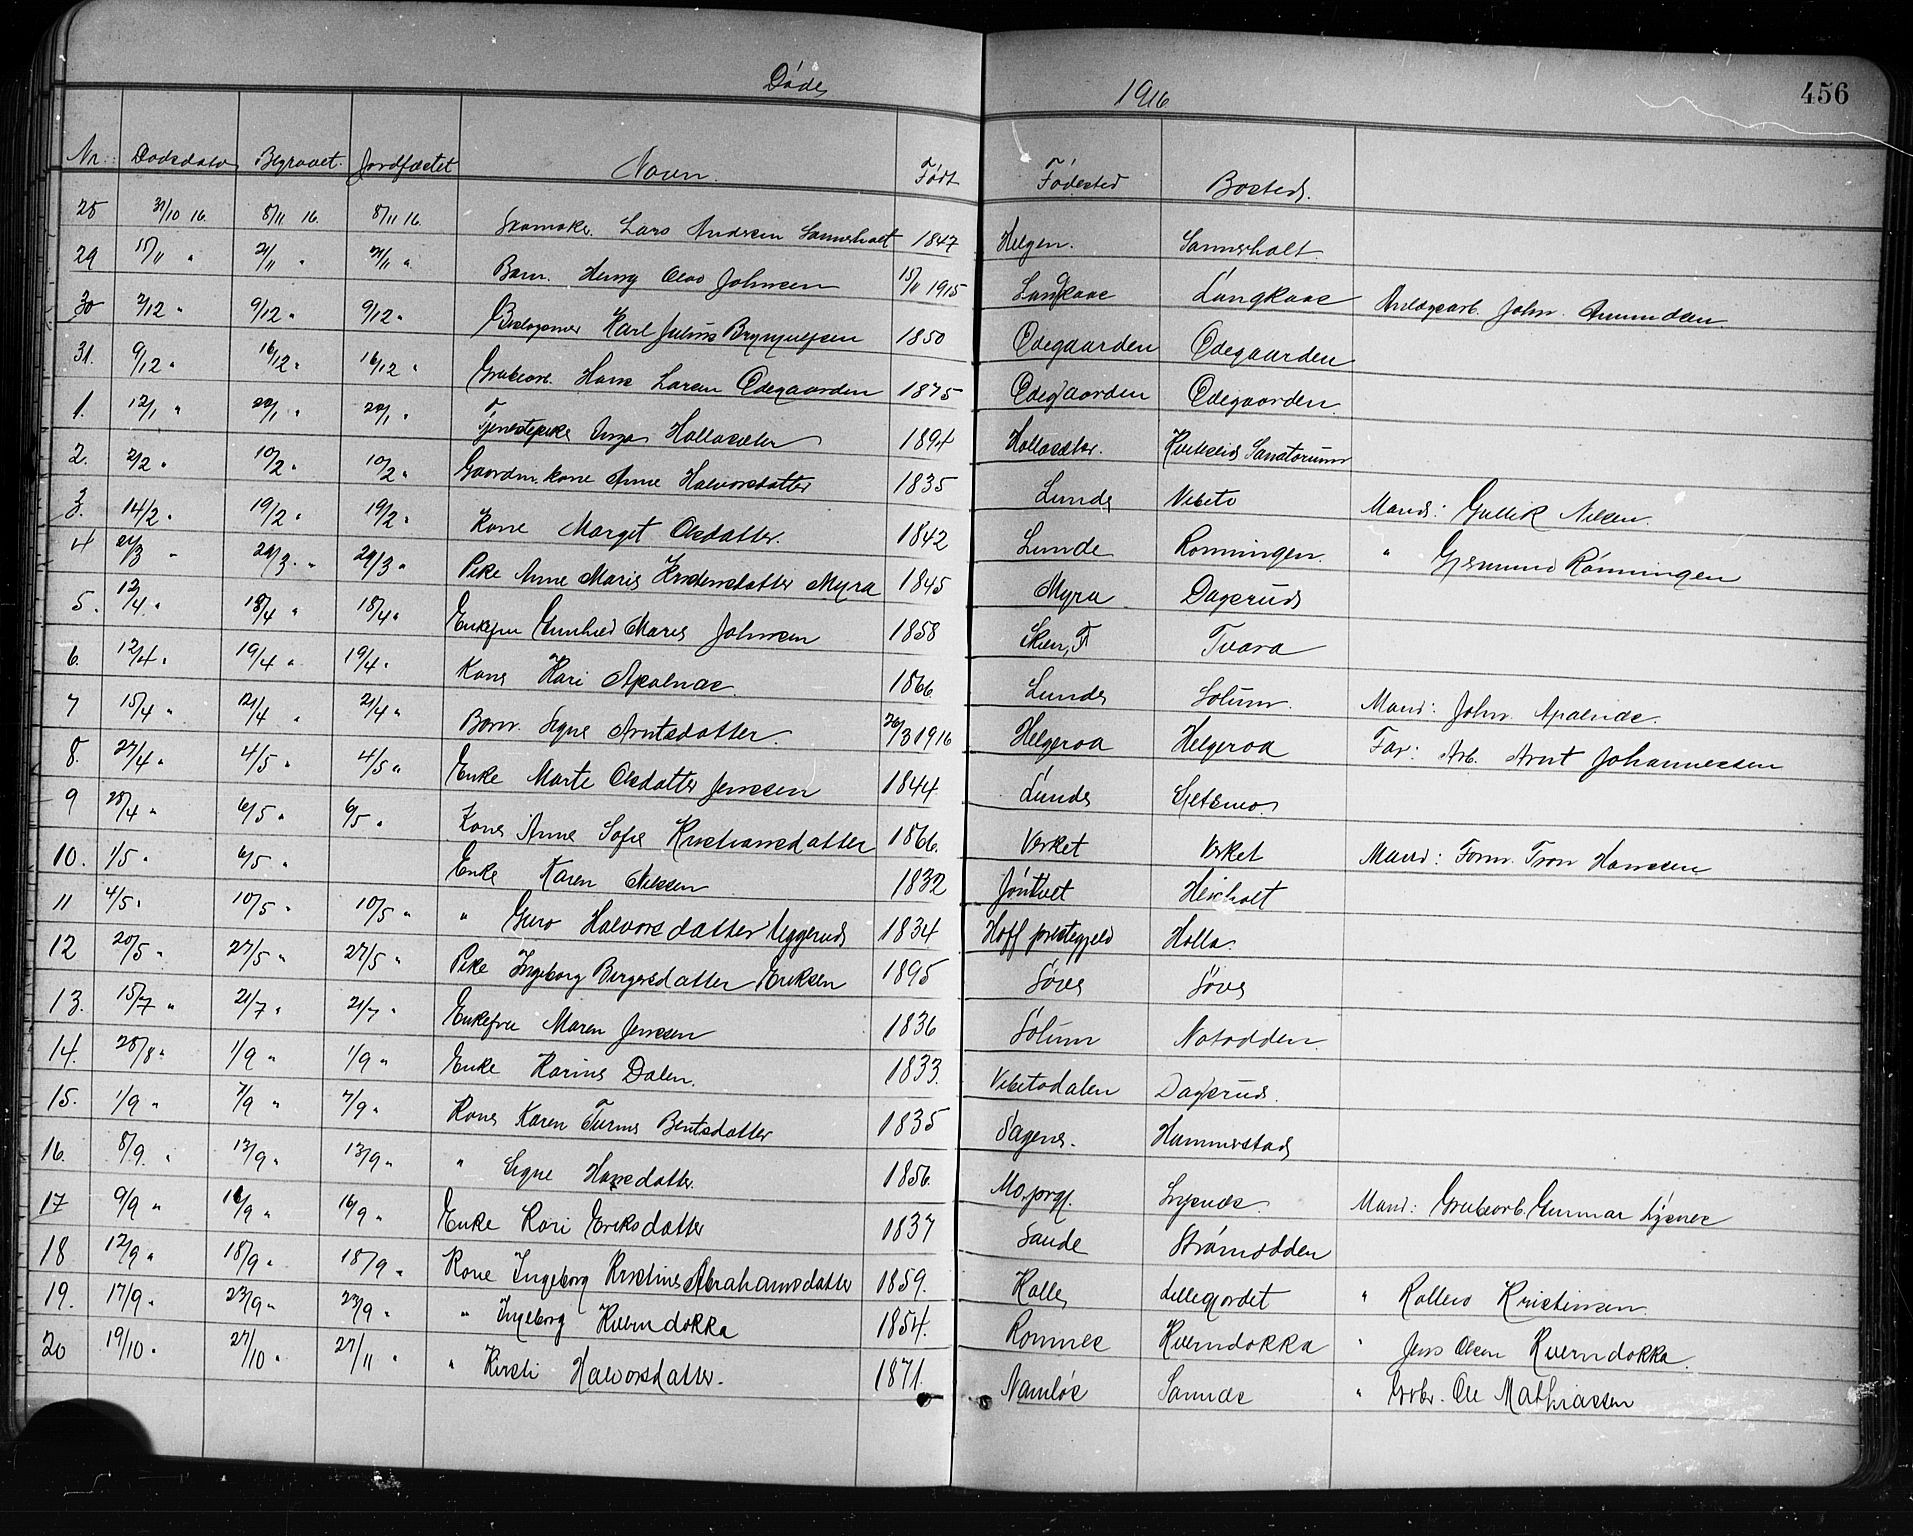 Døde 1916 456
Nr. Dødsdato Begravet. Jordfæstet Navn. Født Fødested Bosted.
28 31/10 16. 8/11 16. 8/11 16. Skomaker. Lars Andersen Sannerholt 1847 Helgen. Sannerholt.
29 15/11 " 21/11 " 21/11 " Barn. Henry Olav Johnsen 15/11 1915 Langkaas Langkaas Anlægsarb. John Amundsen
30 2/12 " 9/12 " 9/12 " Karl Julius Brynjulfsen 1850 Ødegaarden Ødegaarden
31. 9/12 " 16/12 " 16/12 " Grubearb. Hans Larsen Ødegaarden 1875 Ødegaarden Ødegaarden.
1. 12/1 " 22/1 " 22/1 " Tjenestepike Inga Hollasæter 1894 Hollasæter. Kviteseid Sanatorium
2. 2/2 " 10/2 " 10/2 " Gaardm. kone Anne Halvorsdatter 1835 Lunde Vibeto Mand: Gullik Nilsen.
3. 14/2 " 19/2 " 19/2 " Kone Margit Olsdatter. 1842 Lunde Rønningen. " Gjermund Rønningen
4 21/3 " 29/3 " 29/3 " Pike Anne Marie Kristensdatter Myra 1845 Myra Dagsrud
5. 12/4 " 18/4 " 18/4 " Enkefru Gunhild Marie Johnsen 1858 Skien, F Tvara
6. 12/4 " 19/4 " 19/4 " Kone Kari Apalnæs. 1866. Lunde Solum. Mand: John Apalnæs.
7 15/4 " 21/4 " 21/4 " Barn. Signe Arntsdatter. 26/3 1916 Helgeroa Helgeroa Far: Arb. Arnt Johannessen
8. 27/4 " 4/5 " 4/5 " Enke Marte Olsdatter Jenssen 1844. Lunde Gjetemo.
9 28/4 " 6/5 " 6/5 " Kone Anne Sofie Kristiansdatter 1866. Verket Verket Mand: Form. Tron Hanssen
10. 1/5 " 6/5 " Enke Karen Nilssen 1832 Jøntvet Heisholt
11 4/5 " 10/5 " 10/5 " " Guro Halvorsdatter Uggerud 1834 Hoff prestegjeld Holla.
12 20/5 " 27/5 " 27/5 " Pike Ingeborg Bergersdatter Eriksen 1895 Søve Søve
13. 15/7 " 21/7 " 21/7 " Enkefru Maren Jenssen 1836 Solum Notodden.
14. 28/8 " 1/9 " 1/9 " Enke Karine Dalen. 1833. Vibetodalen Dagsrud.
15. 1/9 " 7/9 " 7/9 " Kone Karen Turine Bentsdatter 1835 Sagene. Hammerstad
16. 8/9. " 13/9 " 13/9 " " Signe Hansdatter. 1856. Mo, prgj. Lysnæs. Mand: Grubearb. Gunnar Lysnes
17 9/9 " 16/9 " 16/9 " Enke Kari Eriksdatter 1837 Saude Strømodden
18. 12/9 " 18/9 " 18/9 " Kone Ingeborg Kristine Abrahamsdatter 1859. Kalle Lillegjordet " Kristensen.
19. 17/9 " 23/9 " 23/9 " " Ingeborg Kverndokka 1854. Romnes Kverndokka " Jens Olsen Kverndokka.
20 19/10 " 27/10 " 27/11 " " Kirsti Halvorsdatter. 1871. Namløs Sannes " Ole Mathiassen